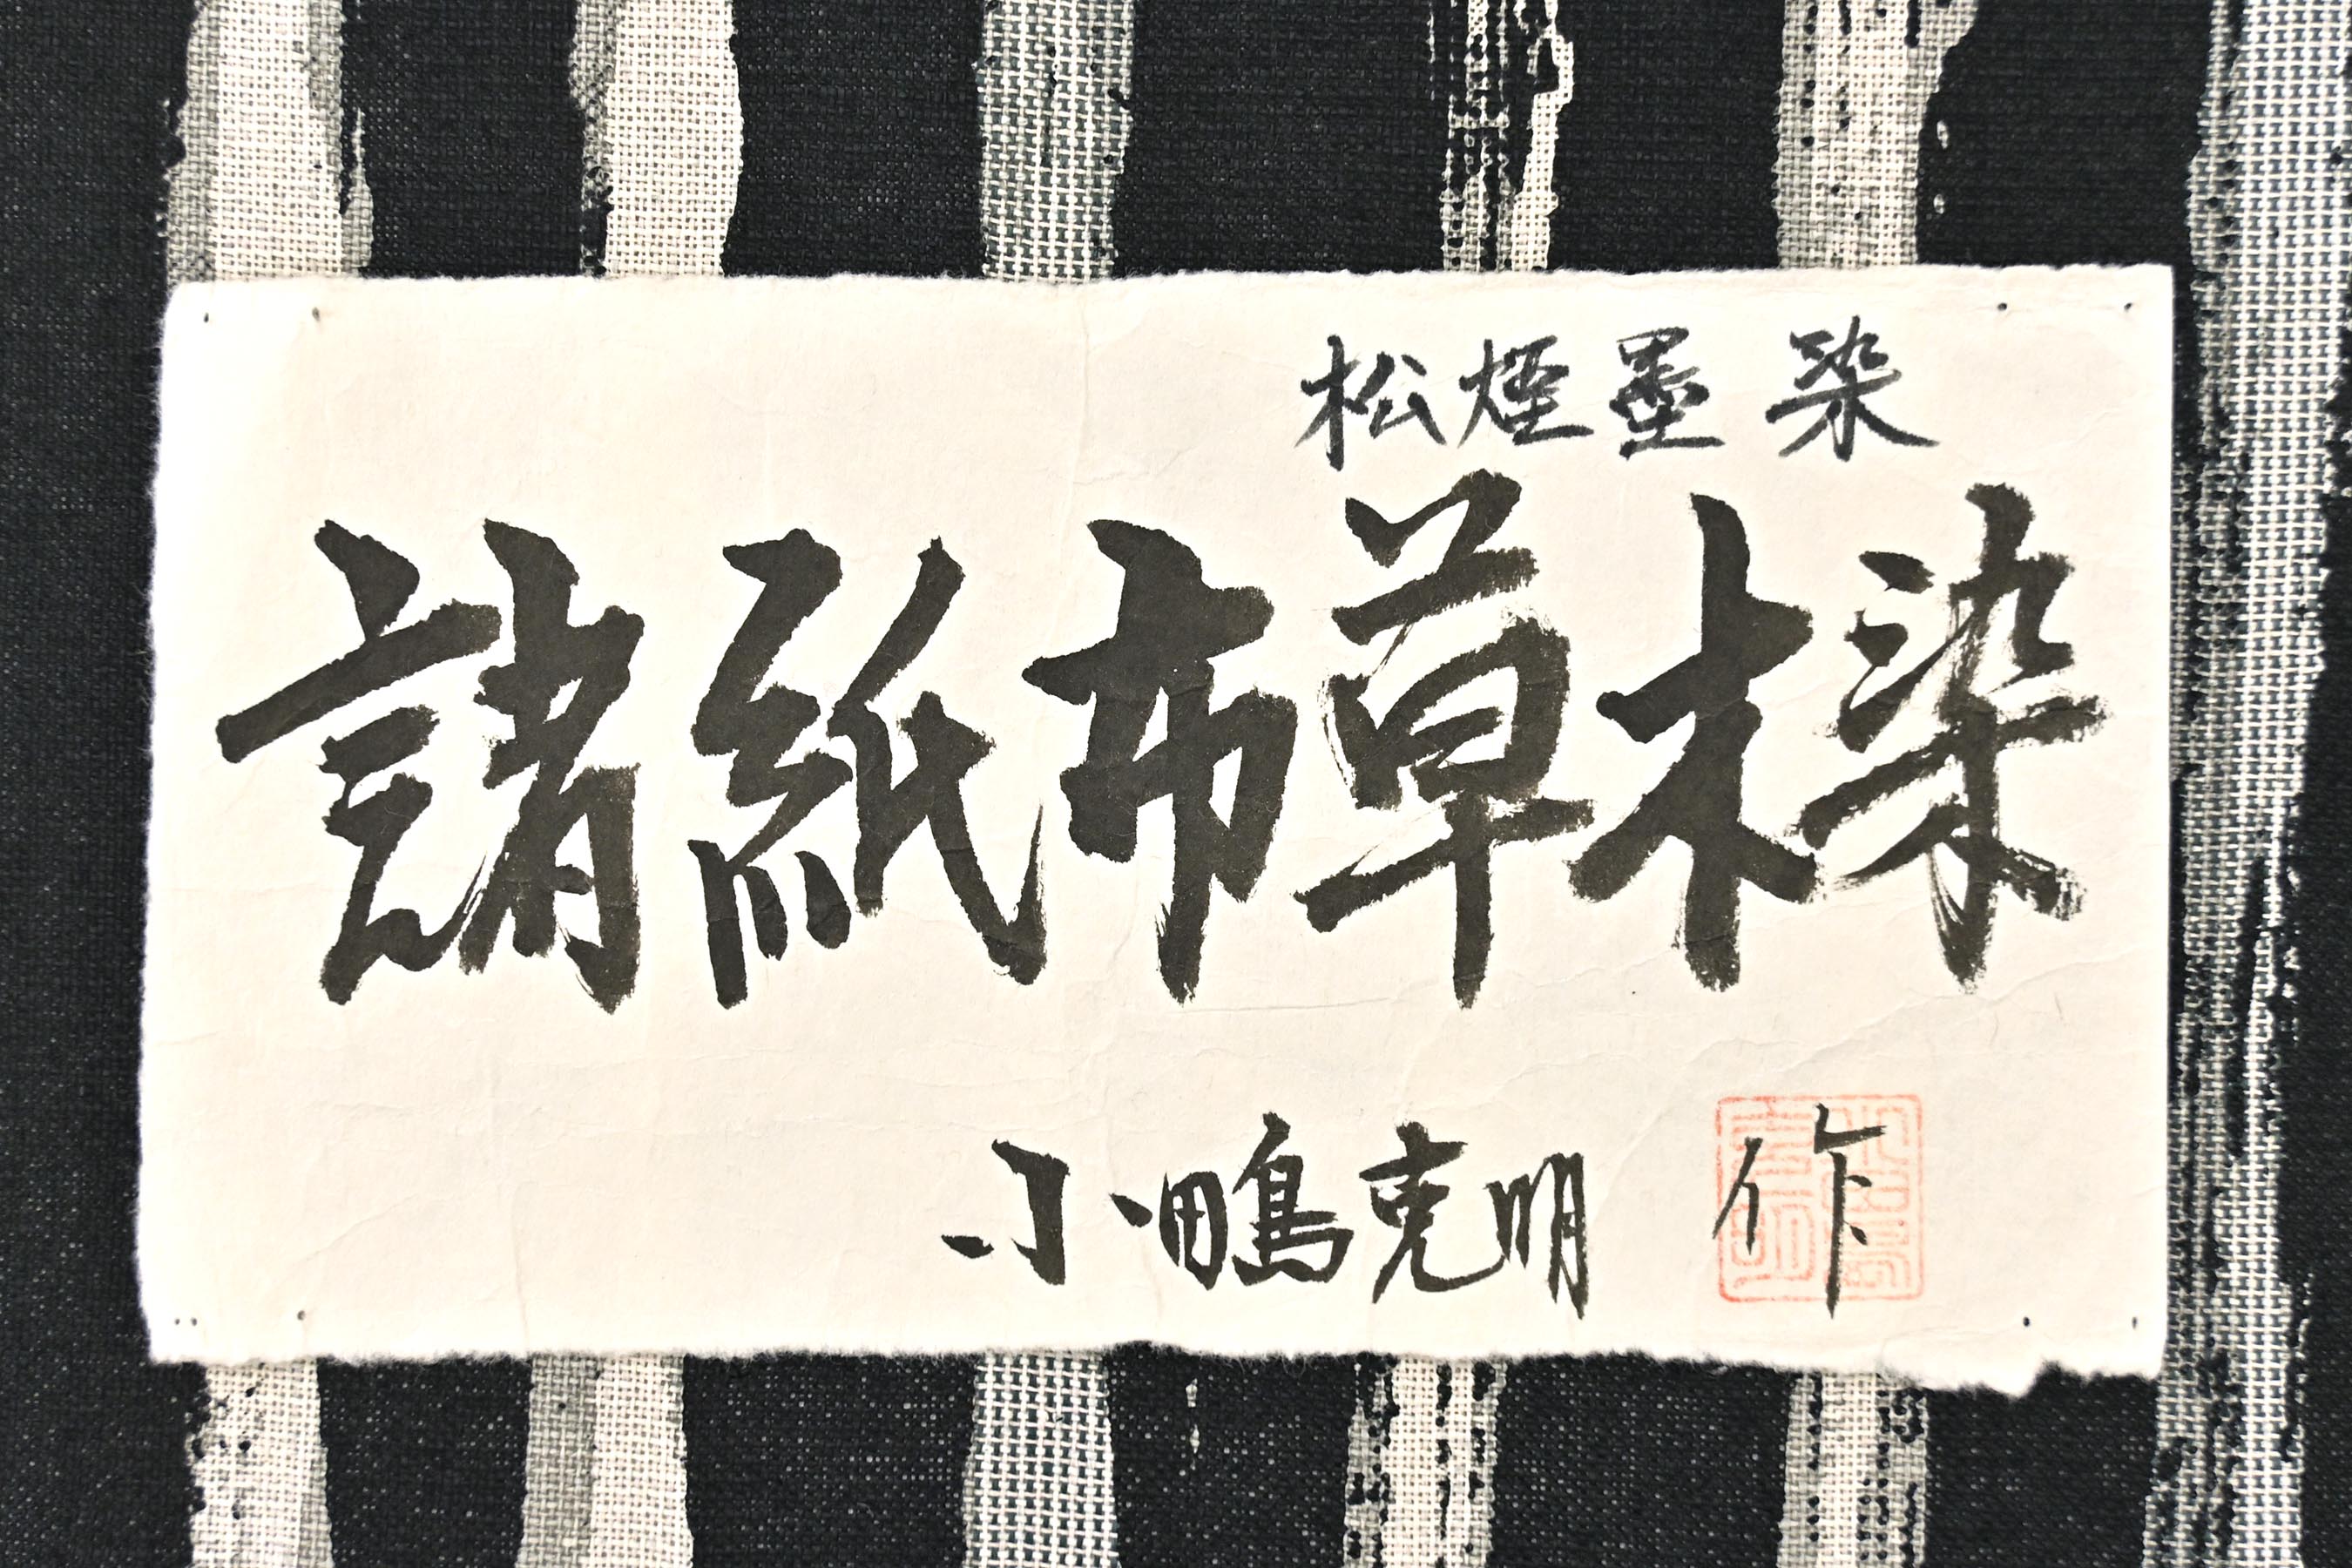 松煙墨染
諸紙布草木染
小鴫克明 作